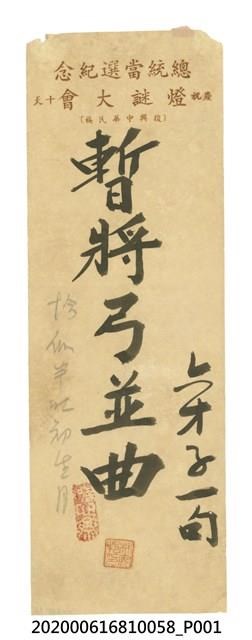 總統當選紀念
慶祝燈謎大會十天
〔復興中華民族〕
六才子一句
暫將弓並曲
恰似半吐初生月
202000616810058_P001